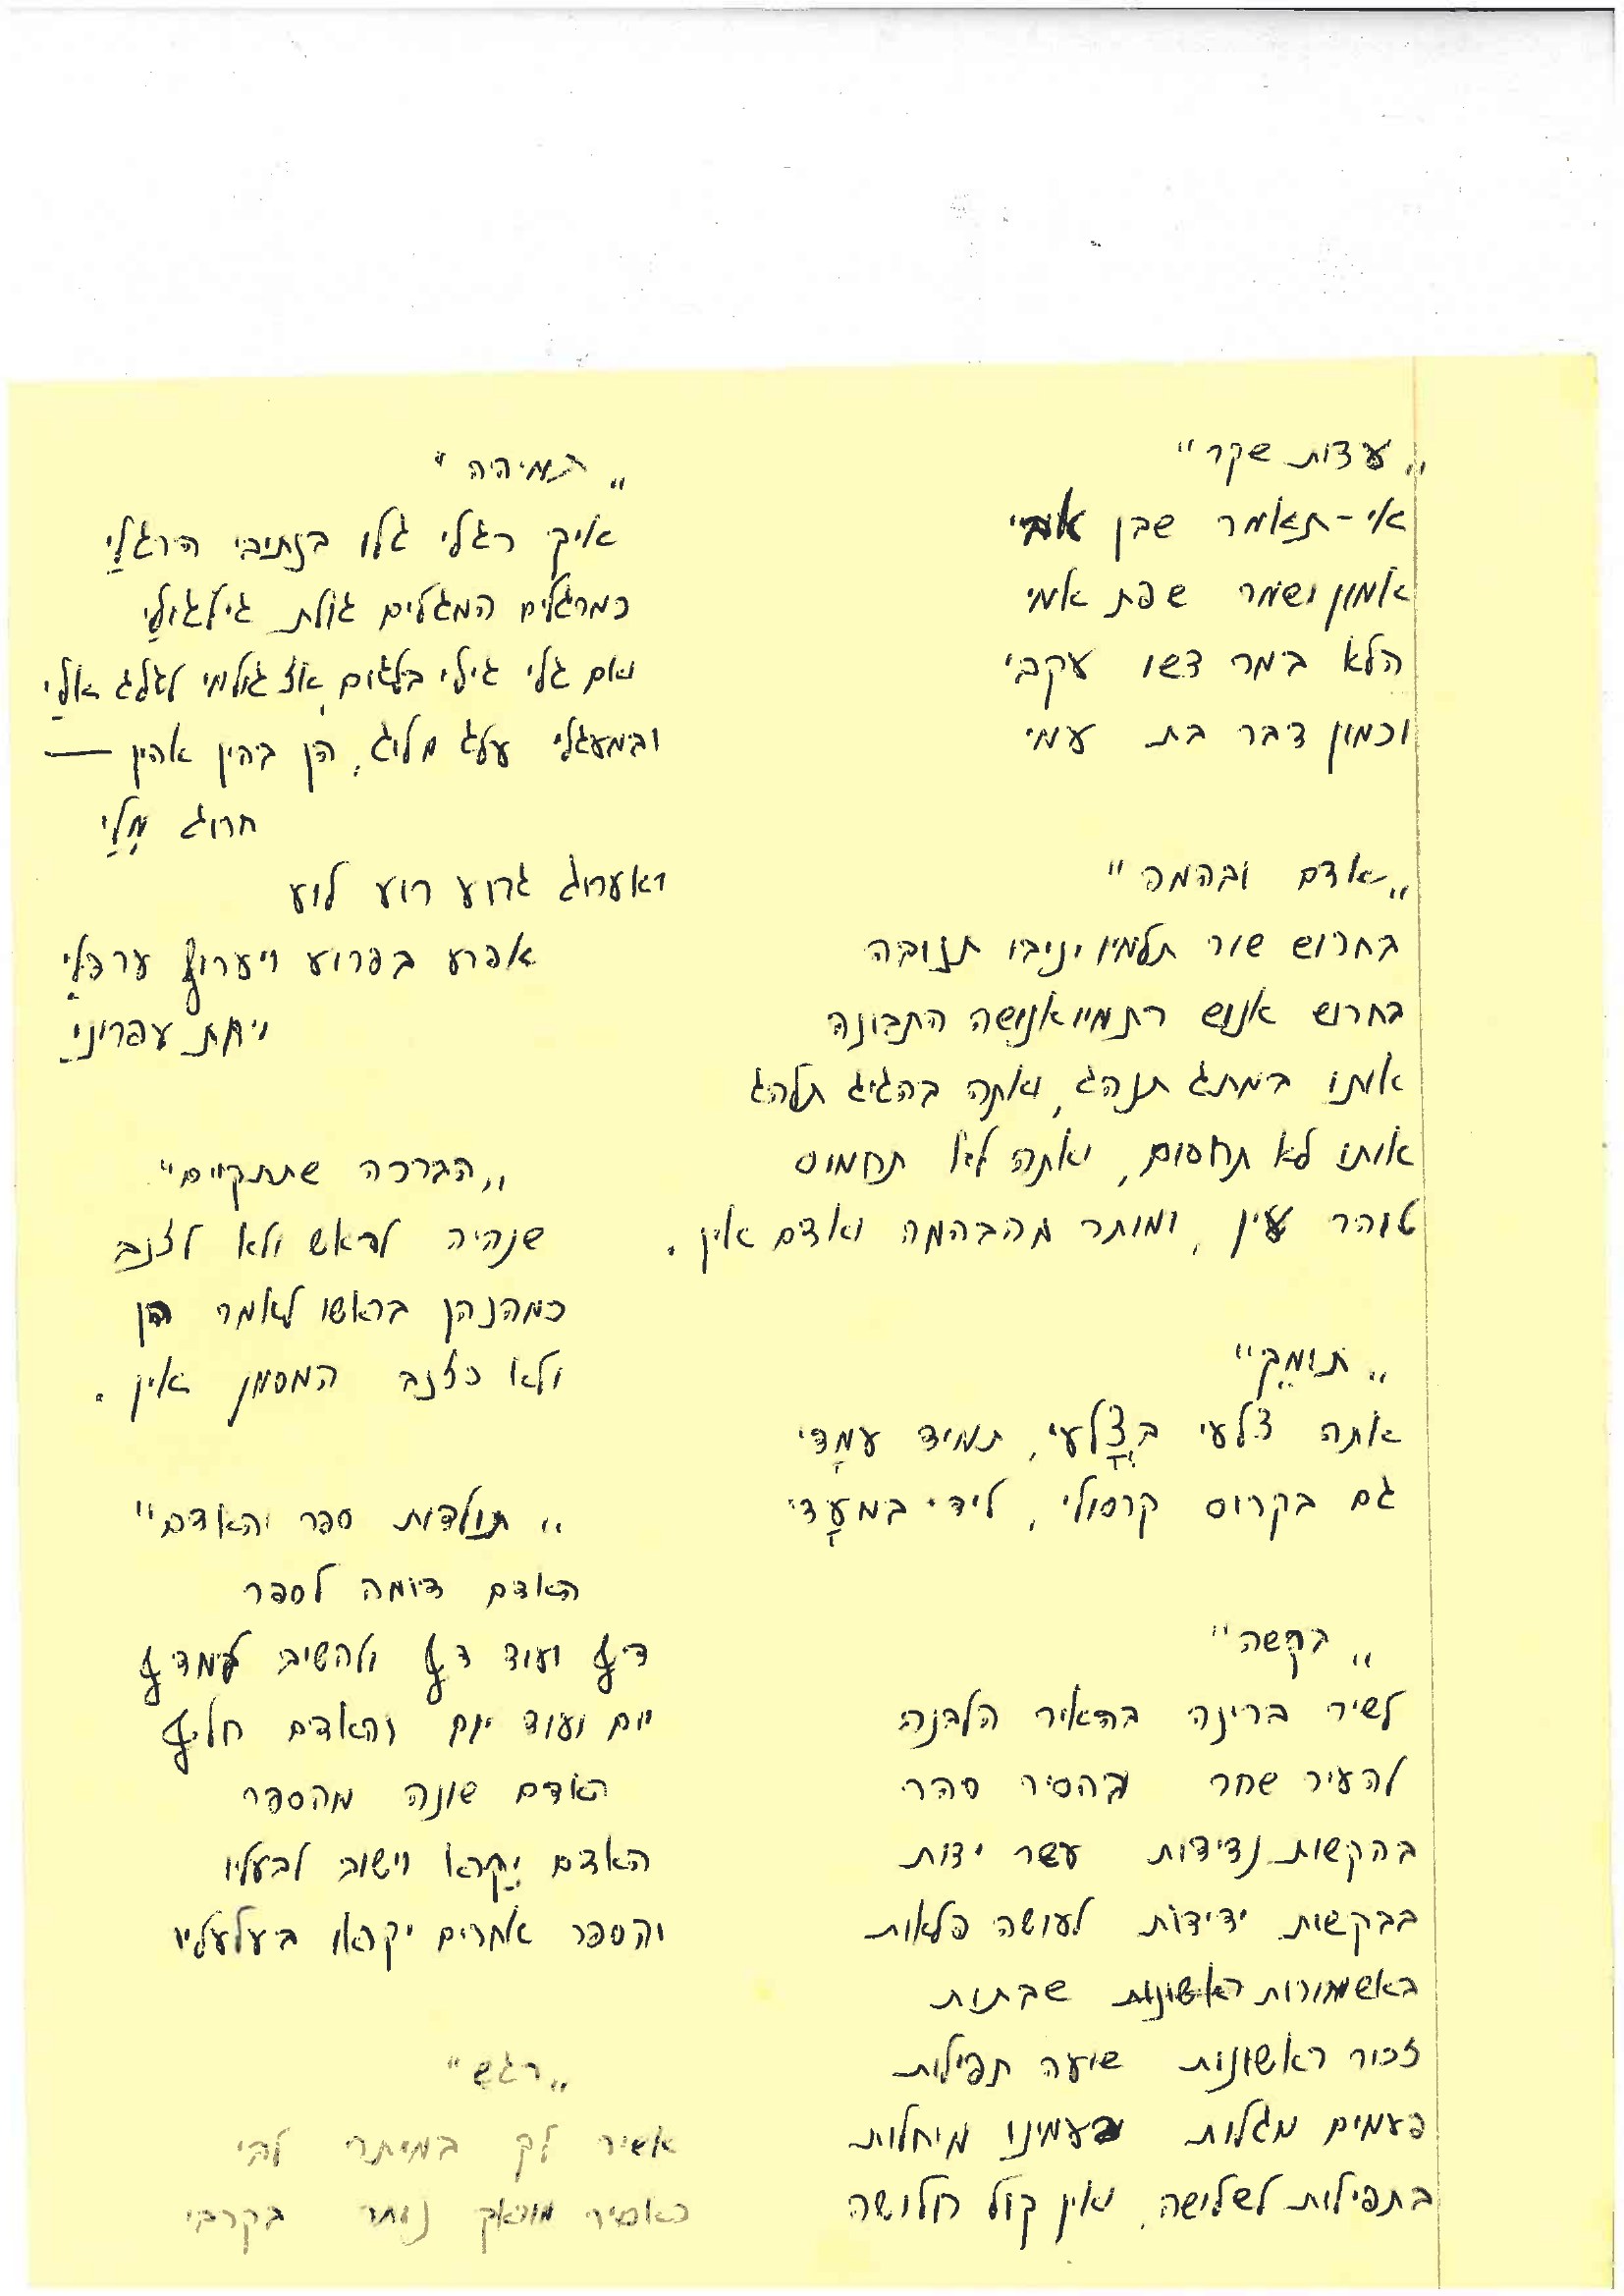 „עדות שקר"
אי-תאמר שבן אבי
אמון ושומר שפת אמי
הלא במר דשו עקבי
וכמון דבר בת עמי
„אדם ובהמה"
בחרוש שור תלמיו יניבו תנובה
בחרוש אנוש רתמיו אנושה התבונה
אותו במתג תנהג, ואתה בהגיג תלהג
אותו לא תחסום, ואתה לא תחמוס
טוהר עין, ומותר מהבהמה ואדם אין.
„תומך"
אתה צלעי בצלעי, תמיד עמדי
גם בקרוס קרסולי, לידי במעדי
„בקשה"
לשיר ברינה בהאיר הלבנה
להעיר שחר בהסיר סהר
בהקשות נדידות עשר ידות
בבקשות ידידות לעושה פלאות
באשמורות ראשונות שבתות
זכור ראשונות שועה תפילות
פעמים מגלות בעמינו מיחלות
בתפילות לשלישה, ואין קול חלושה
„תמיהה"
איך רגלי גלו בנתיבי הרגלי
כמרגלים המגלים גולת גילגולי
ואם גלי גילי בלגום, אז גולמי לגלג אלי
ובמעגלי עלג מלוג, הן בהין אהין —
חרוג מלי
ואערוג גרוע רוע לוע
אפרע בפרוע ויערוף ערפלי
ויחת עפרוני
„הברכה שתתקיים"
שנהיה לראש ולא לזנב
כמהנהן בראשו לאמר הן
ולא כזנב המסמן אין.
„תולדות ספר והאדם"
האדם דומה לספר
דף ועוד דף ולהשיב למדף
יום ועוד יום והאדם חלף
האדם שונה מהספר
האדם יקרא וישוב לבעליו
והספר אחרים יקראו בעלעליו
„רגש"
אשיר לך במיתר לבי
כאסיר מוכאך נותר בקרבי